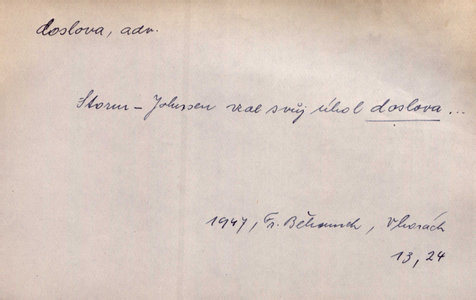 doslova, adv.
Storm – Johnsen vzal svůj úkol doslova...
1947, Fr. Běhounek, V horách
13, 24